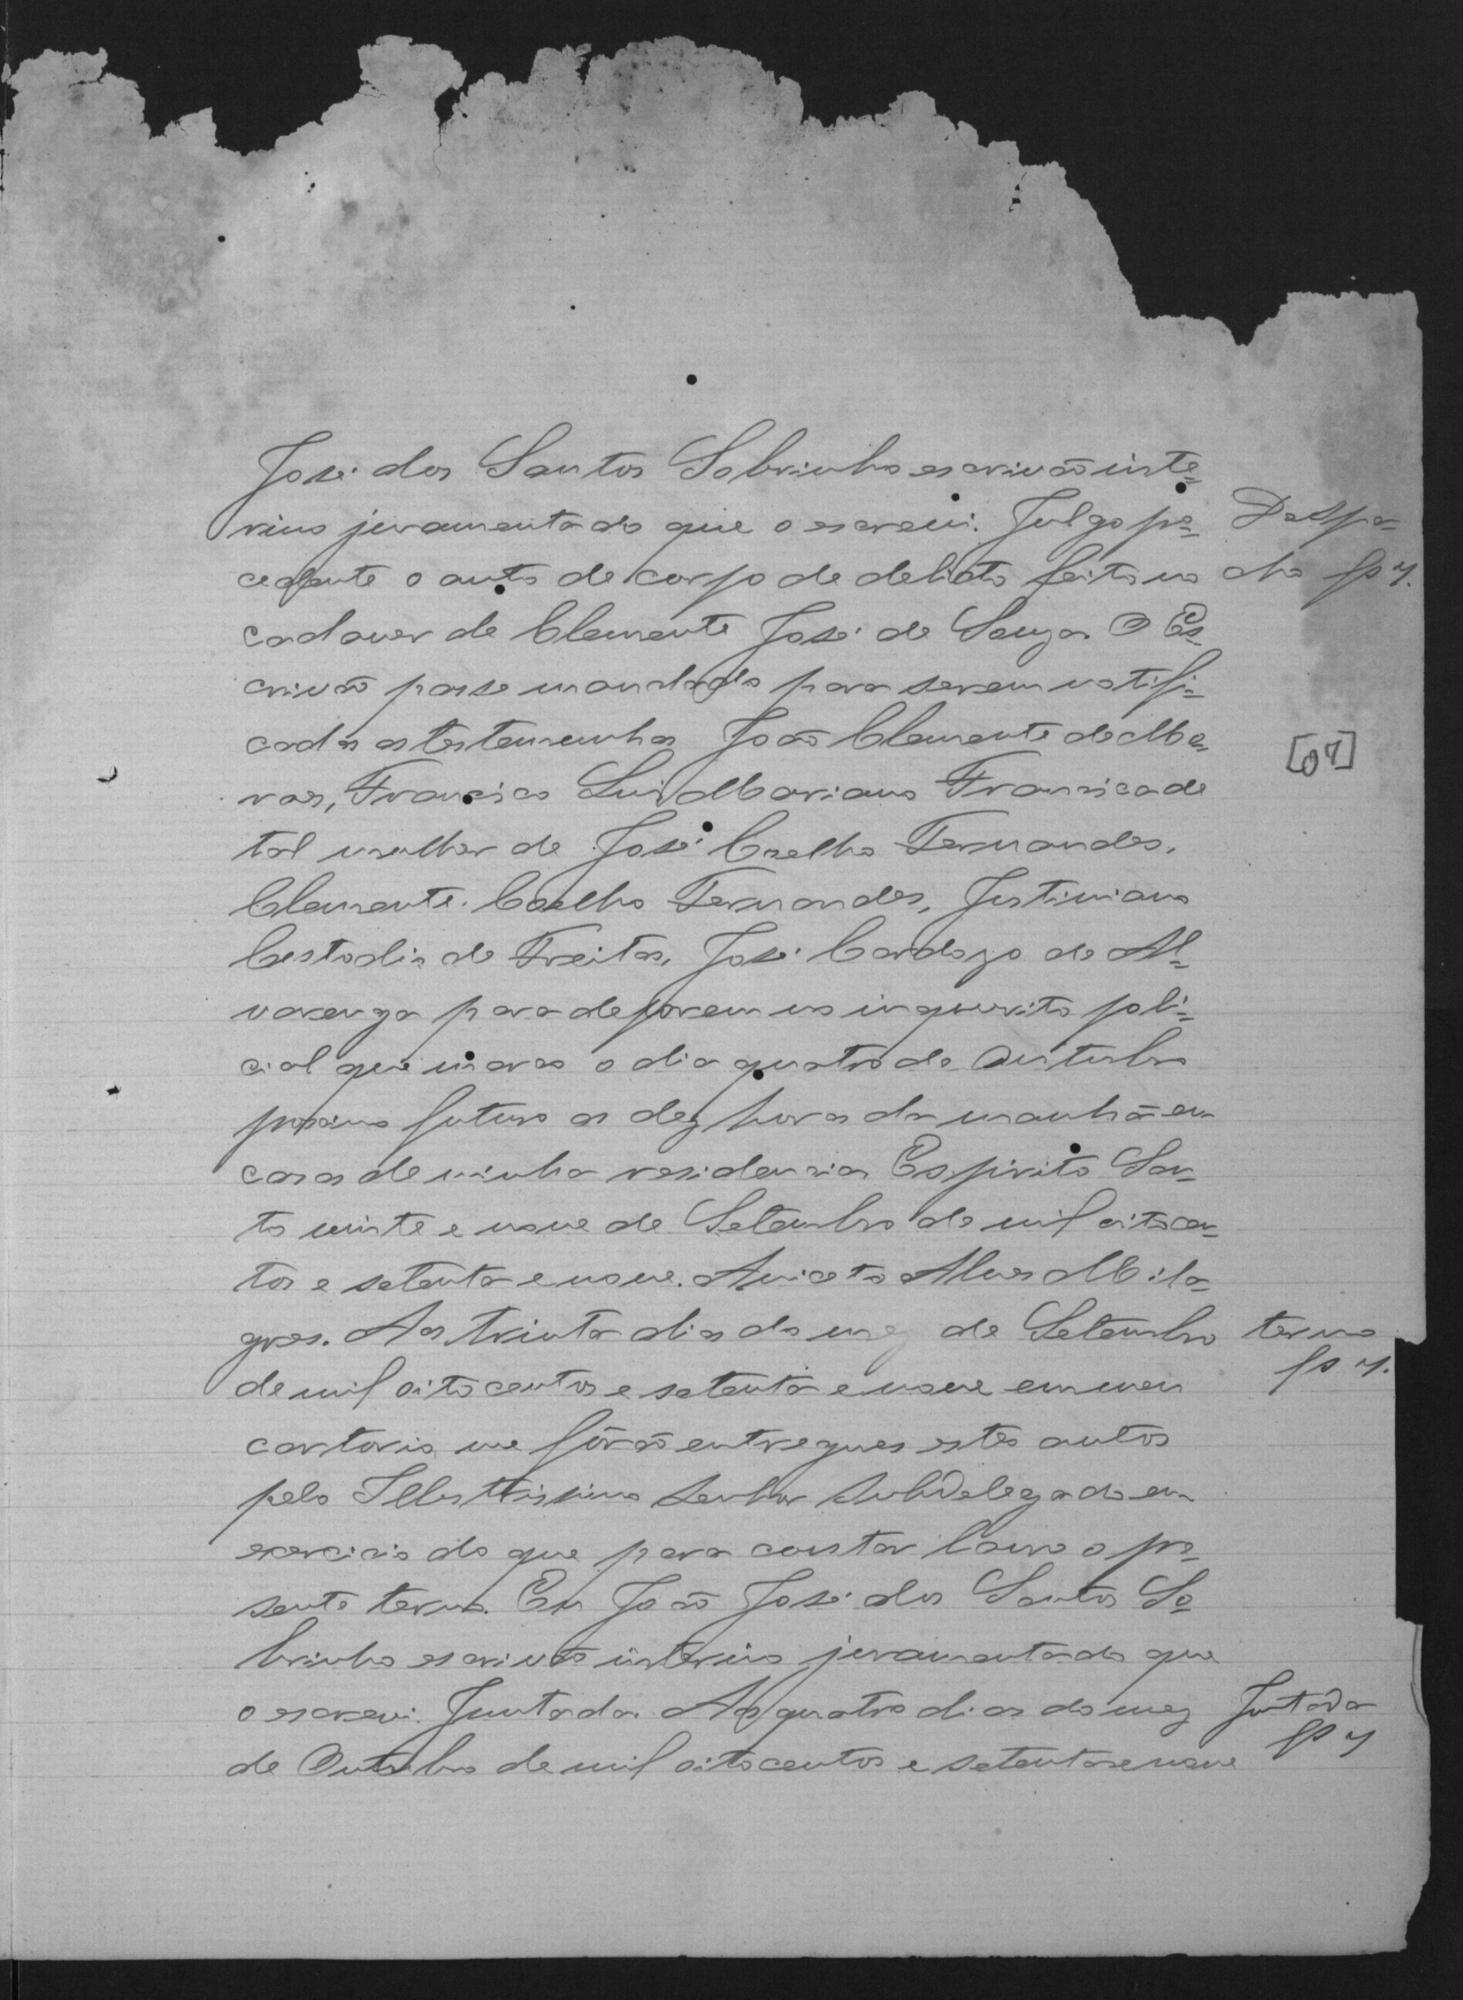 José dos Santos Sobrinho escrivão inte=
rino juramentado que o escrevi. Julgo pr=
cedente o auto de corpo de delicto feito no
cadaver de Clemente José de Souza. O Es=
crivão passe mandado para serem notifi=
cadas as testemunhas João Clemente de
Francisco Luis Mariano Francisca de
tal mulher de José Coelho Fernandes,
Clemente Coelho Fernandes, Justiniano
Custodio de Freitas, José Cardozo de Al=
varenga para deporem no inquerito poli=
cial que marco o dia quatro de Outubro
proximo futuro as dez horas da manhã em
casa de minha residencia Espirito San=
to vinte e nove de Setembro de mil oitocen=
tos e setenta e nove. Aniceto Alves Mila=
gres. Aos trinta dias do mez de Setembro
de mil oito centos e setenta e nove em meu
cartorio me fôrão entregues estes autos
pelo Illustrissimo Senhor Subdelegado em
exercicio do que para constar lavro o pre=
sente termo. Eu João José dos Santos So=
brinho escrivão interino juramentado que
o escrevi. Juntada. Aos quatro dias do mez
de Outubro de mil oitocentos e setenta e nove
Despa=
cho fs 7.
[07]
termo
fs 7.
Juntada
fs 7